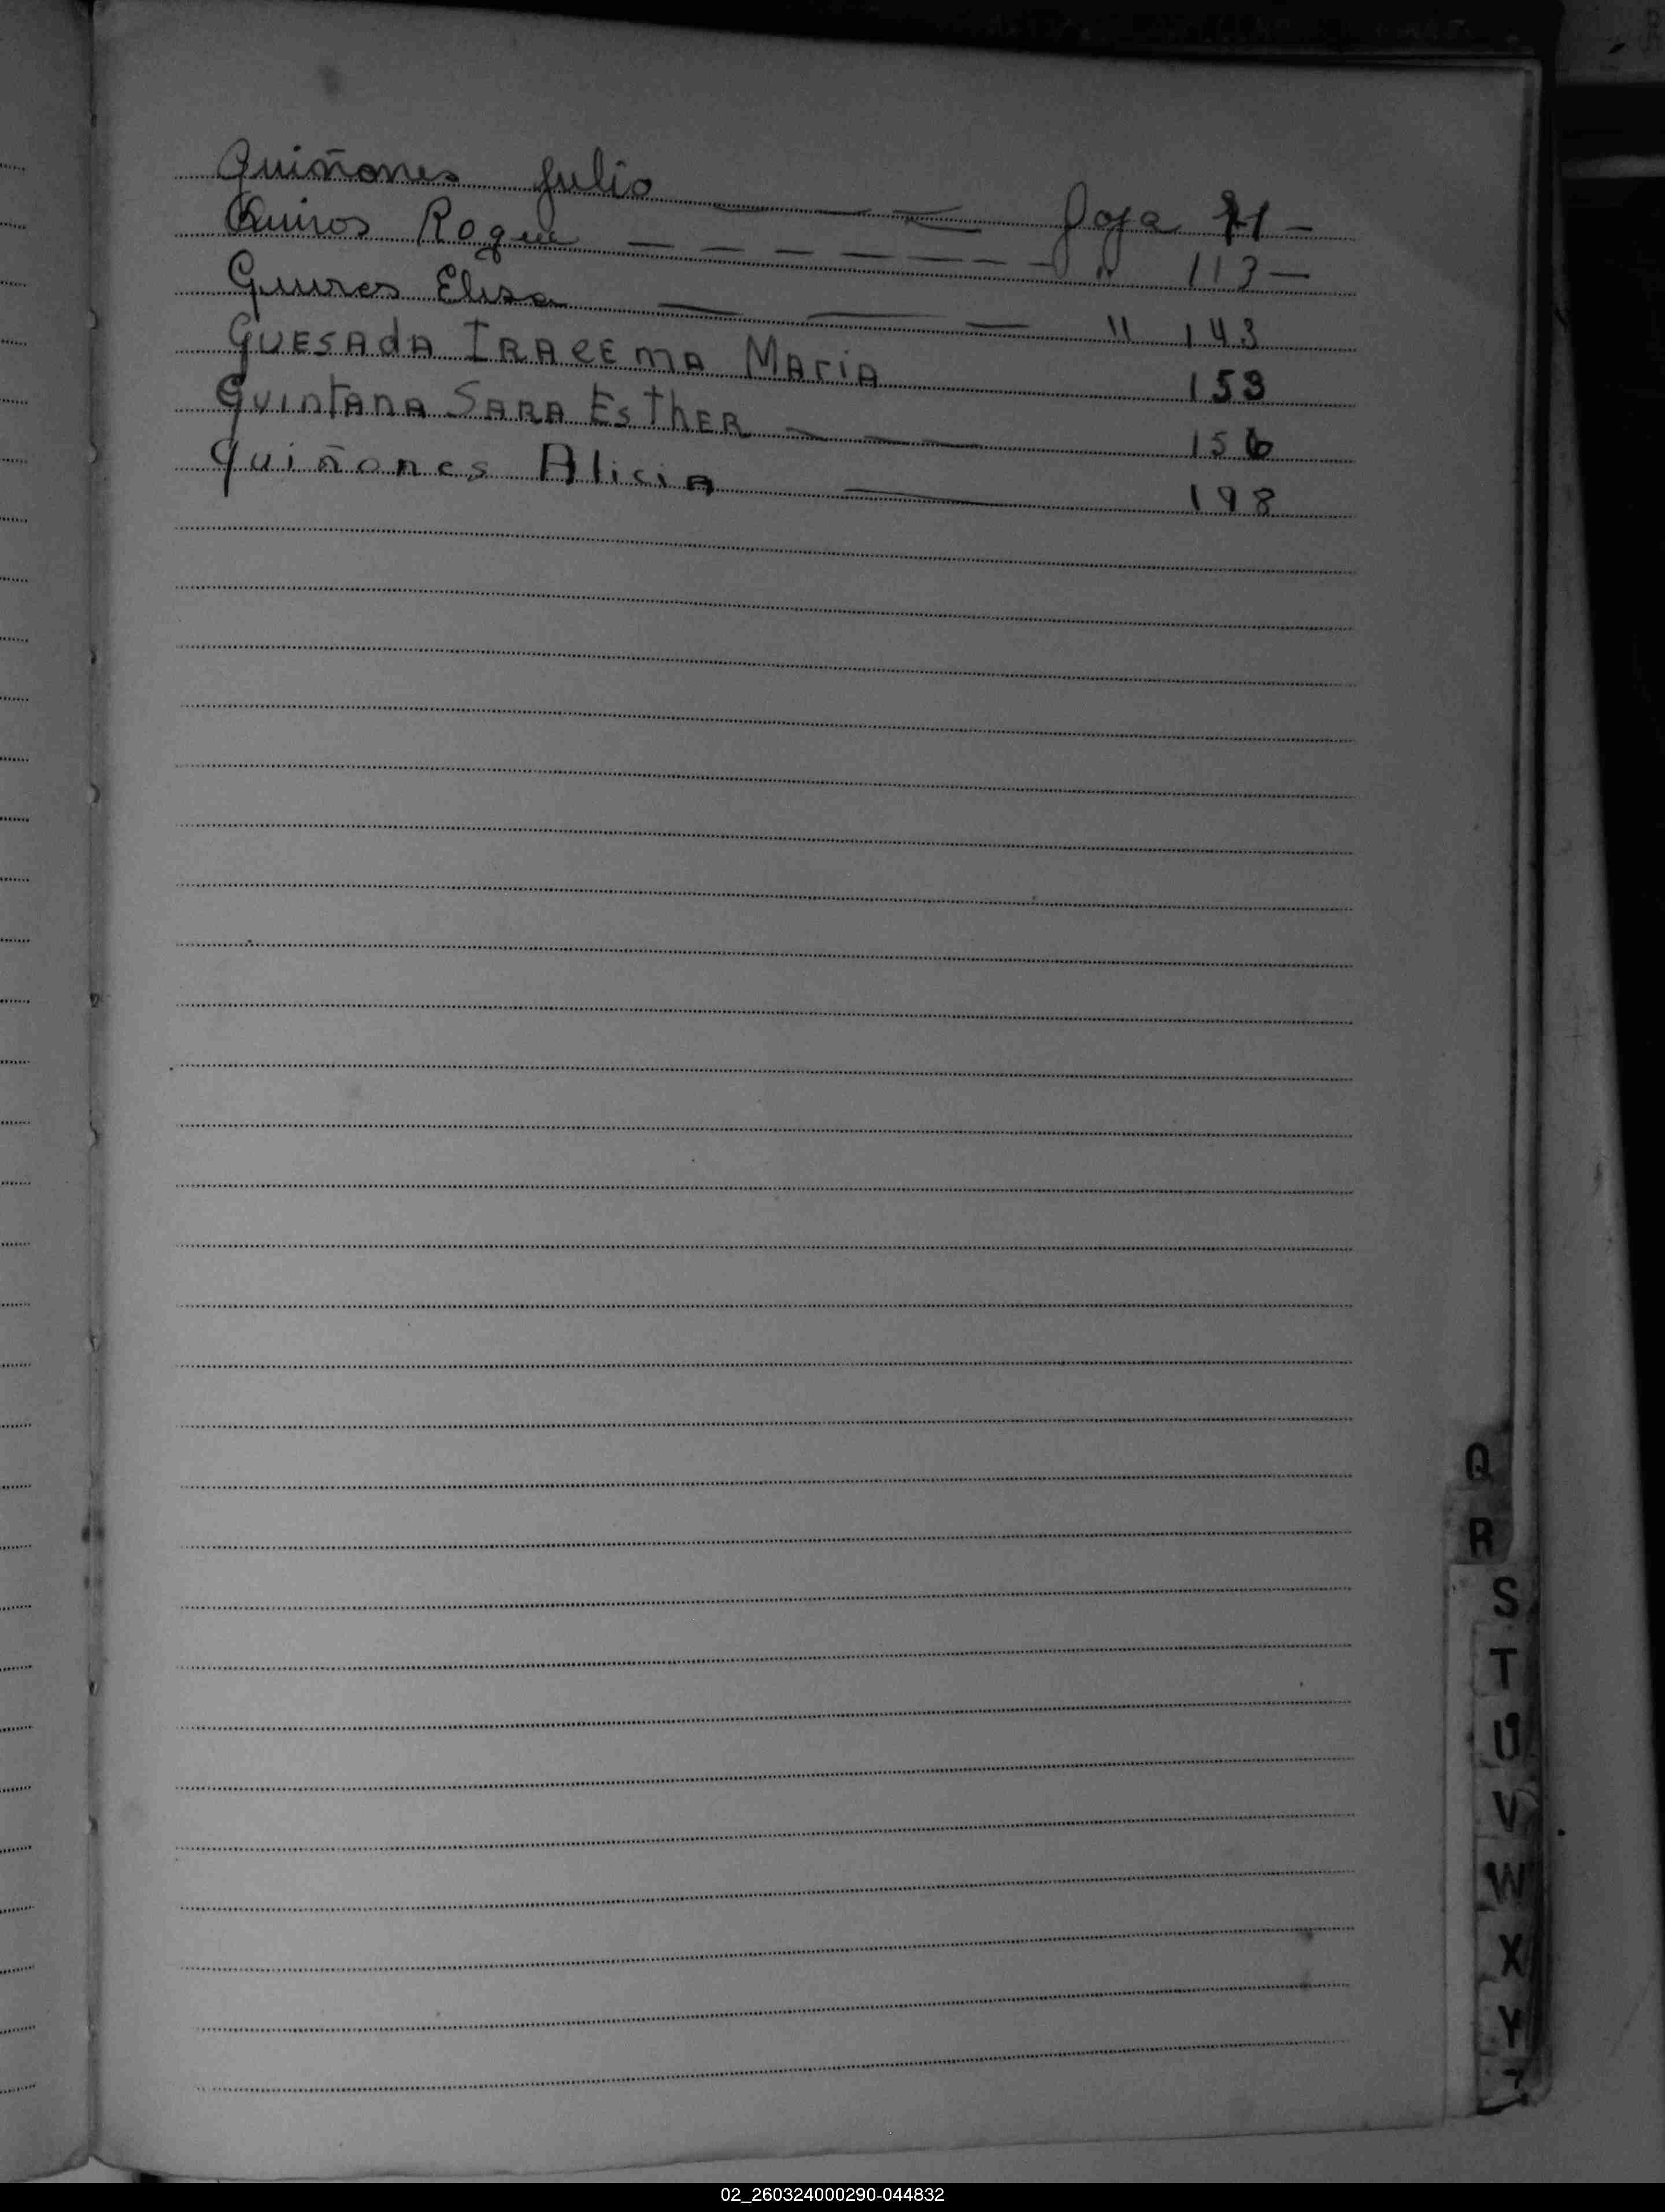 Quiñones Julio — — Foja 71 -
Quiros Roque — — — — — — — " 113 —
Quires Elisa — — — " 143
QUESAdA IRACEMA MARIA 153
QUINTANA SARA ESTHER — — — 156
Quiñones Alicia — 198
Q
R
S
T
U
V
W
X
Y
02_260324000290-044832